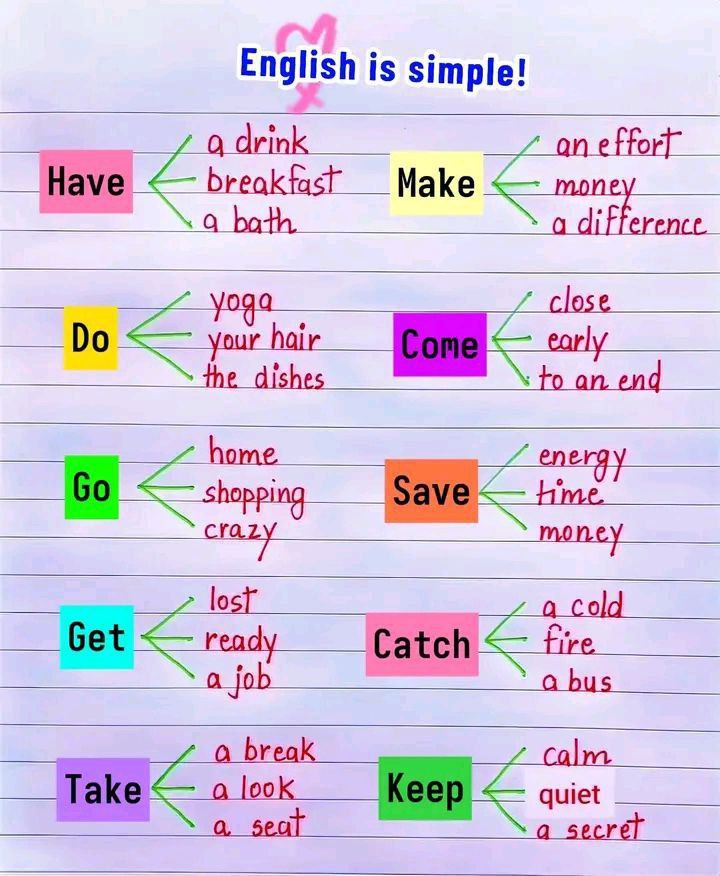 English is simple!
Have
a drink
breakfast
a bath
Make
an effort
money
a difference
Do
yoga
your hair
the dishes
Come
close
early
to an end
Go
home
shopping
crazy
Save
energy
time
money
Get
lost
ready
a job
Catch
a cold
fire
a bus
Take
a break
a look
a seat
Keep
calm
quiet
a secret